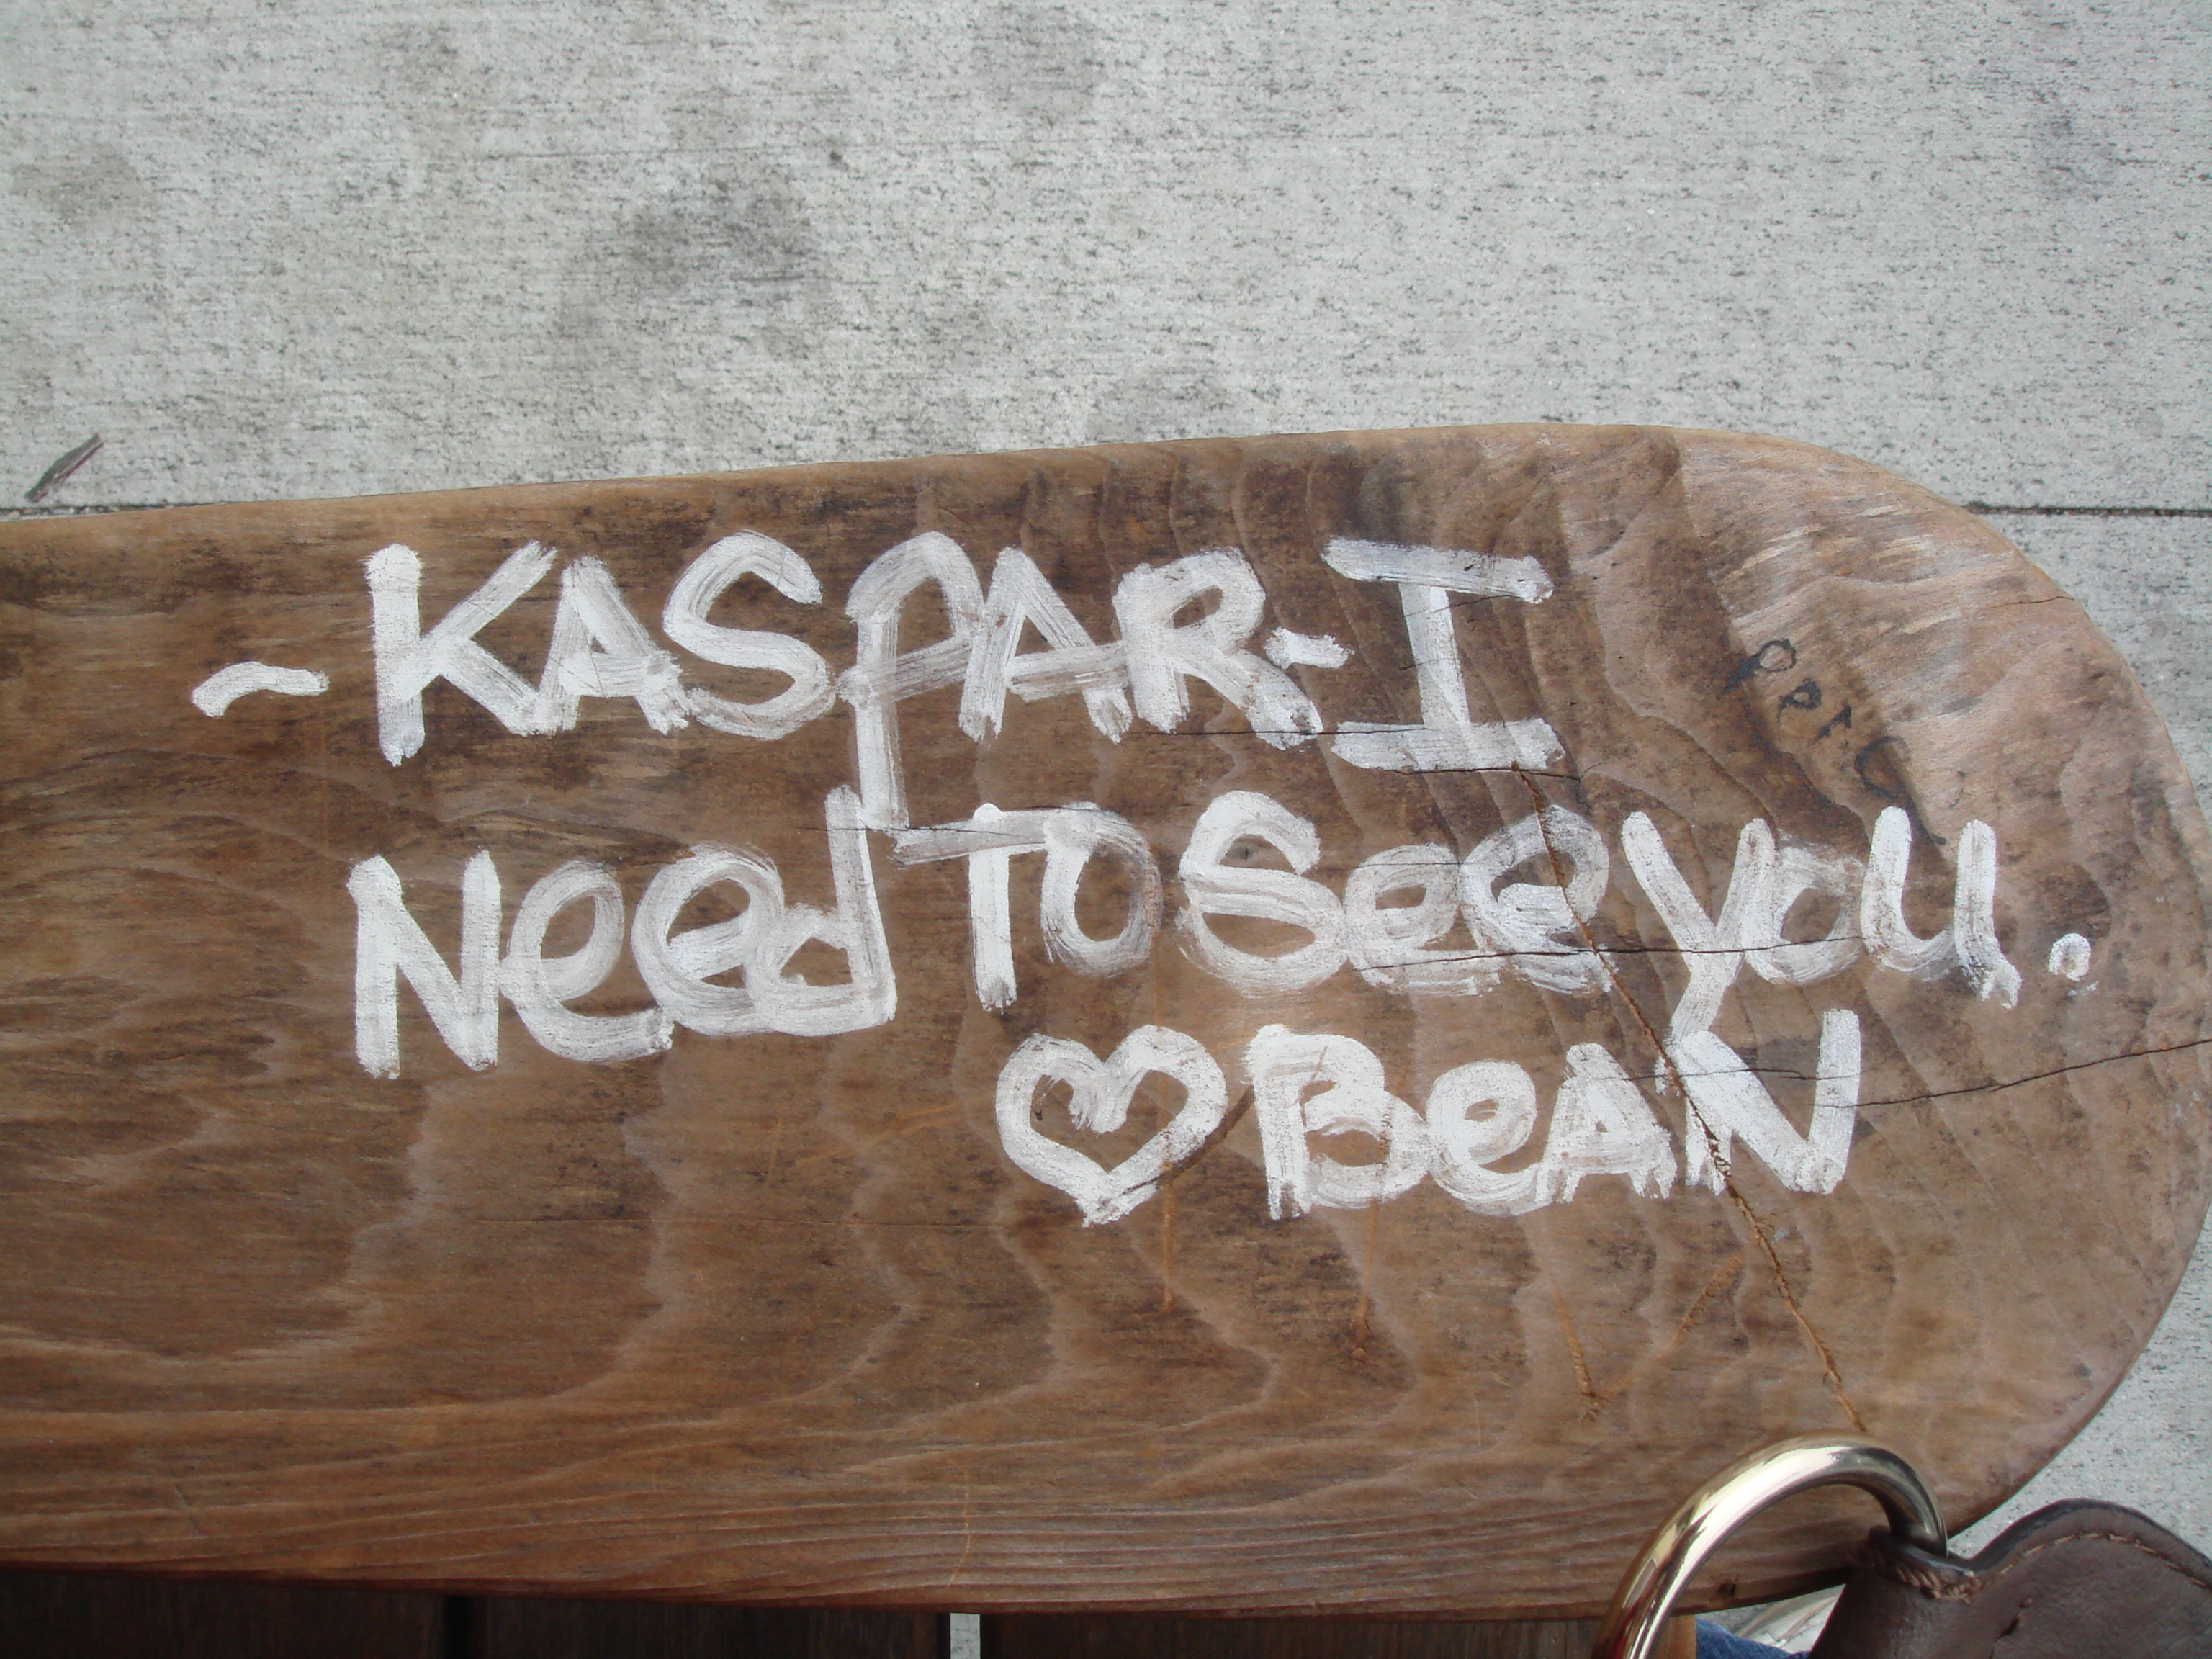 ~KASPAR-I
Need TO See you.
♡ BeAN